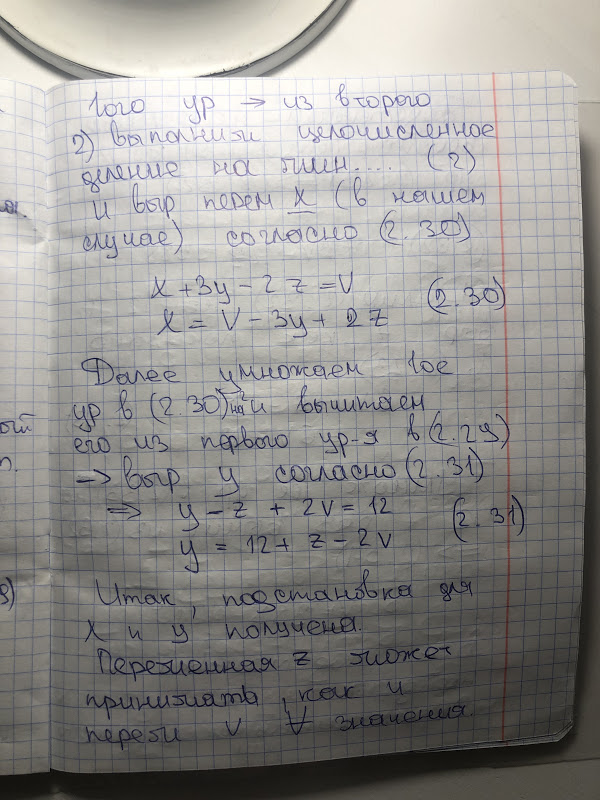 1ого ур → из второго
2) выполнили целочисленное
деление на мин.... (2)
и выр перем x (в нашем
случае) согласно (2.30)
x+3y-2z=V
(2.30)
x = V-3y+2z
Далее умножаем 1ое
ур в (2.30) на 2 и вычитаем
его из первого ур-я в (2.29)
→ выр y согласно (2.31)
⇒ y-z+2V=12
(2.31)
y = 12+z-2V
Итак, подстановка для
x и y получена.
Переменная z может
принимать, как и
перем V ∀ значения.
ый
п.